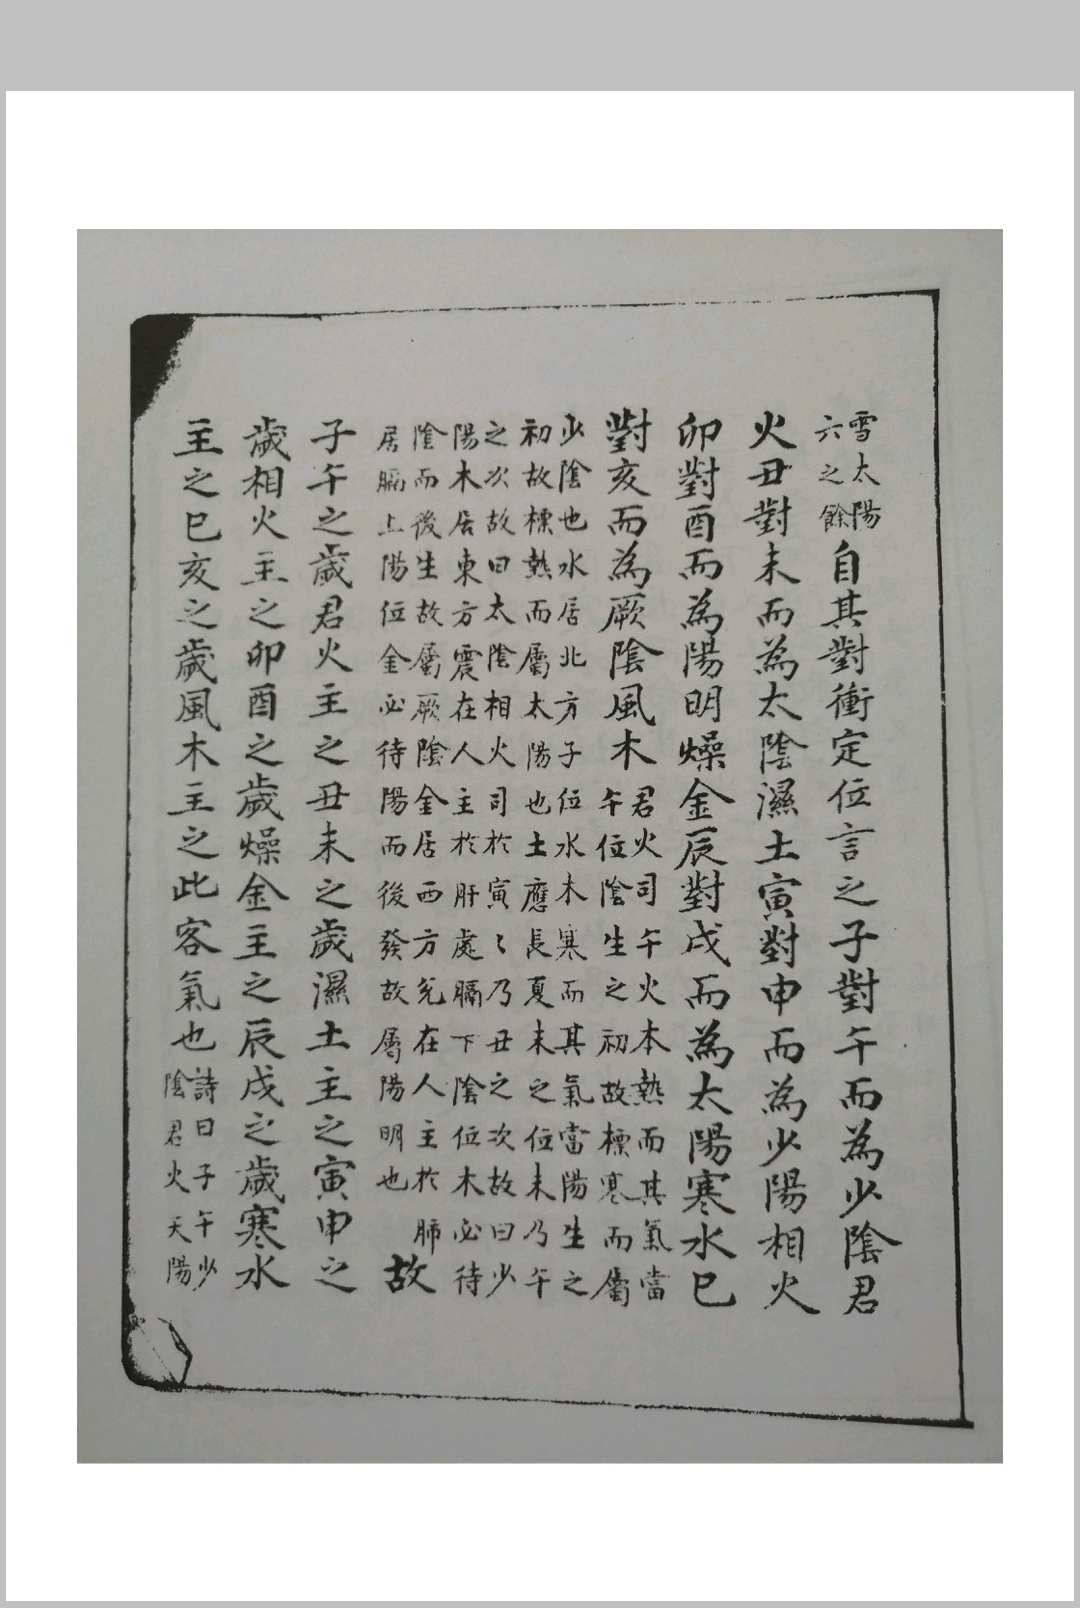 雪太陽
六之餘
自其對衝定位言之子對午而為少陰君
火丑對未而為太陰濕土寅對申而為少陽相火
卯對酉而為陽明燥金辰對戌而為太陽寒水巳
對亥而為厥陰風木
君火司午火本熱而其氣當
午位陰生之初故標寒而屬
少陰也水居北方子位水本寒而其氣當陽生之
初故標熱而屬太陽也土應長夏未之位未乃午
之次故曰太陰相火司於寅〻乃丑之次故曰少
陽木居東方震在人主於肝處膈下陰位木必待
陰而後生故屬厥陰金居西方兌在人主於肺
居膈上陽位金必待陽而後發故屬陽明也
故
子午之歲君火主之丑未之歲濕土主之寅申之
歲相火主之卯酉之歲燥金主之辰戌之歲寒水
主之巳亥之歲風木主之此客氣也
詩曰子午少
陰君火天陽